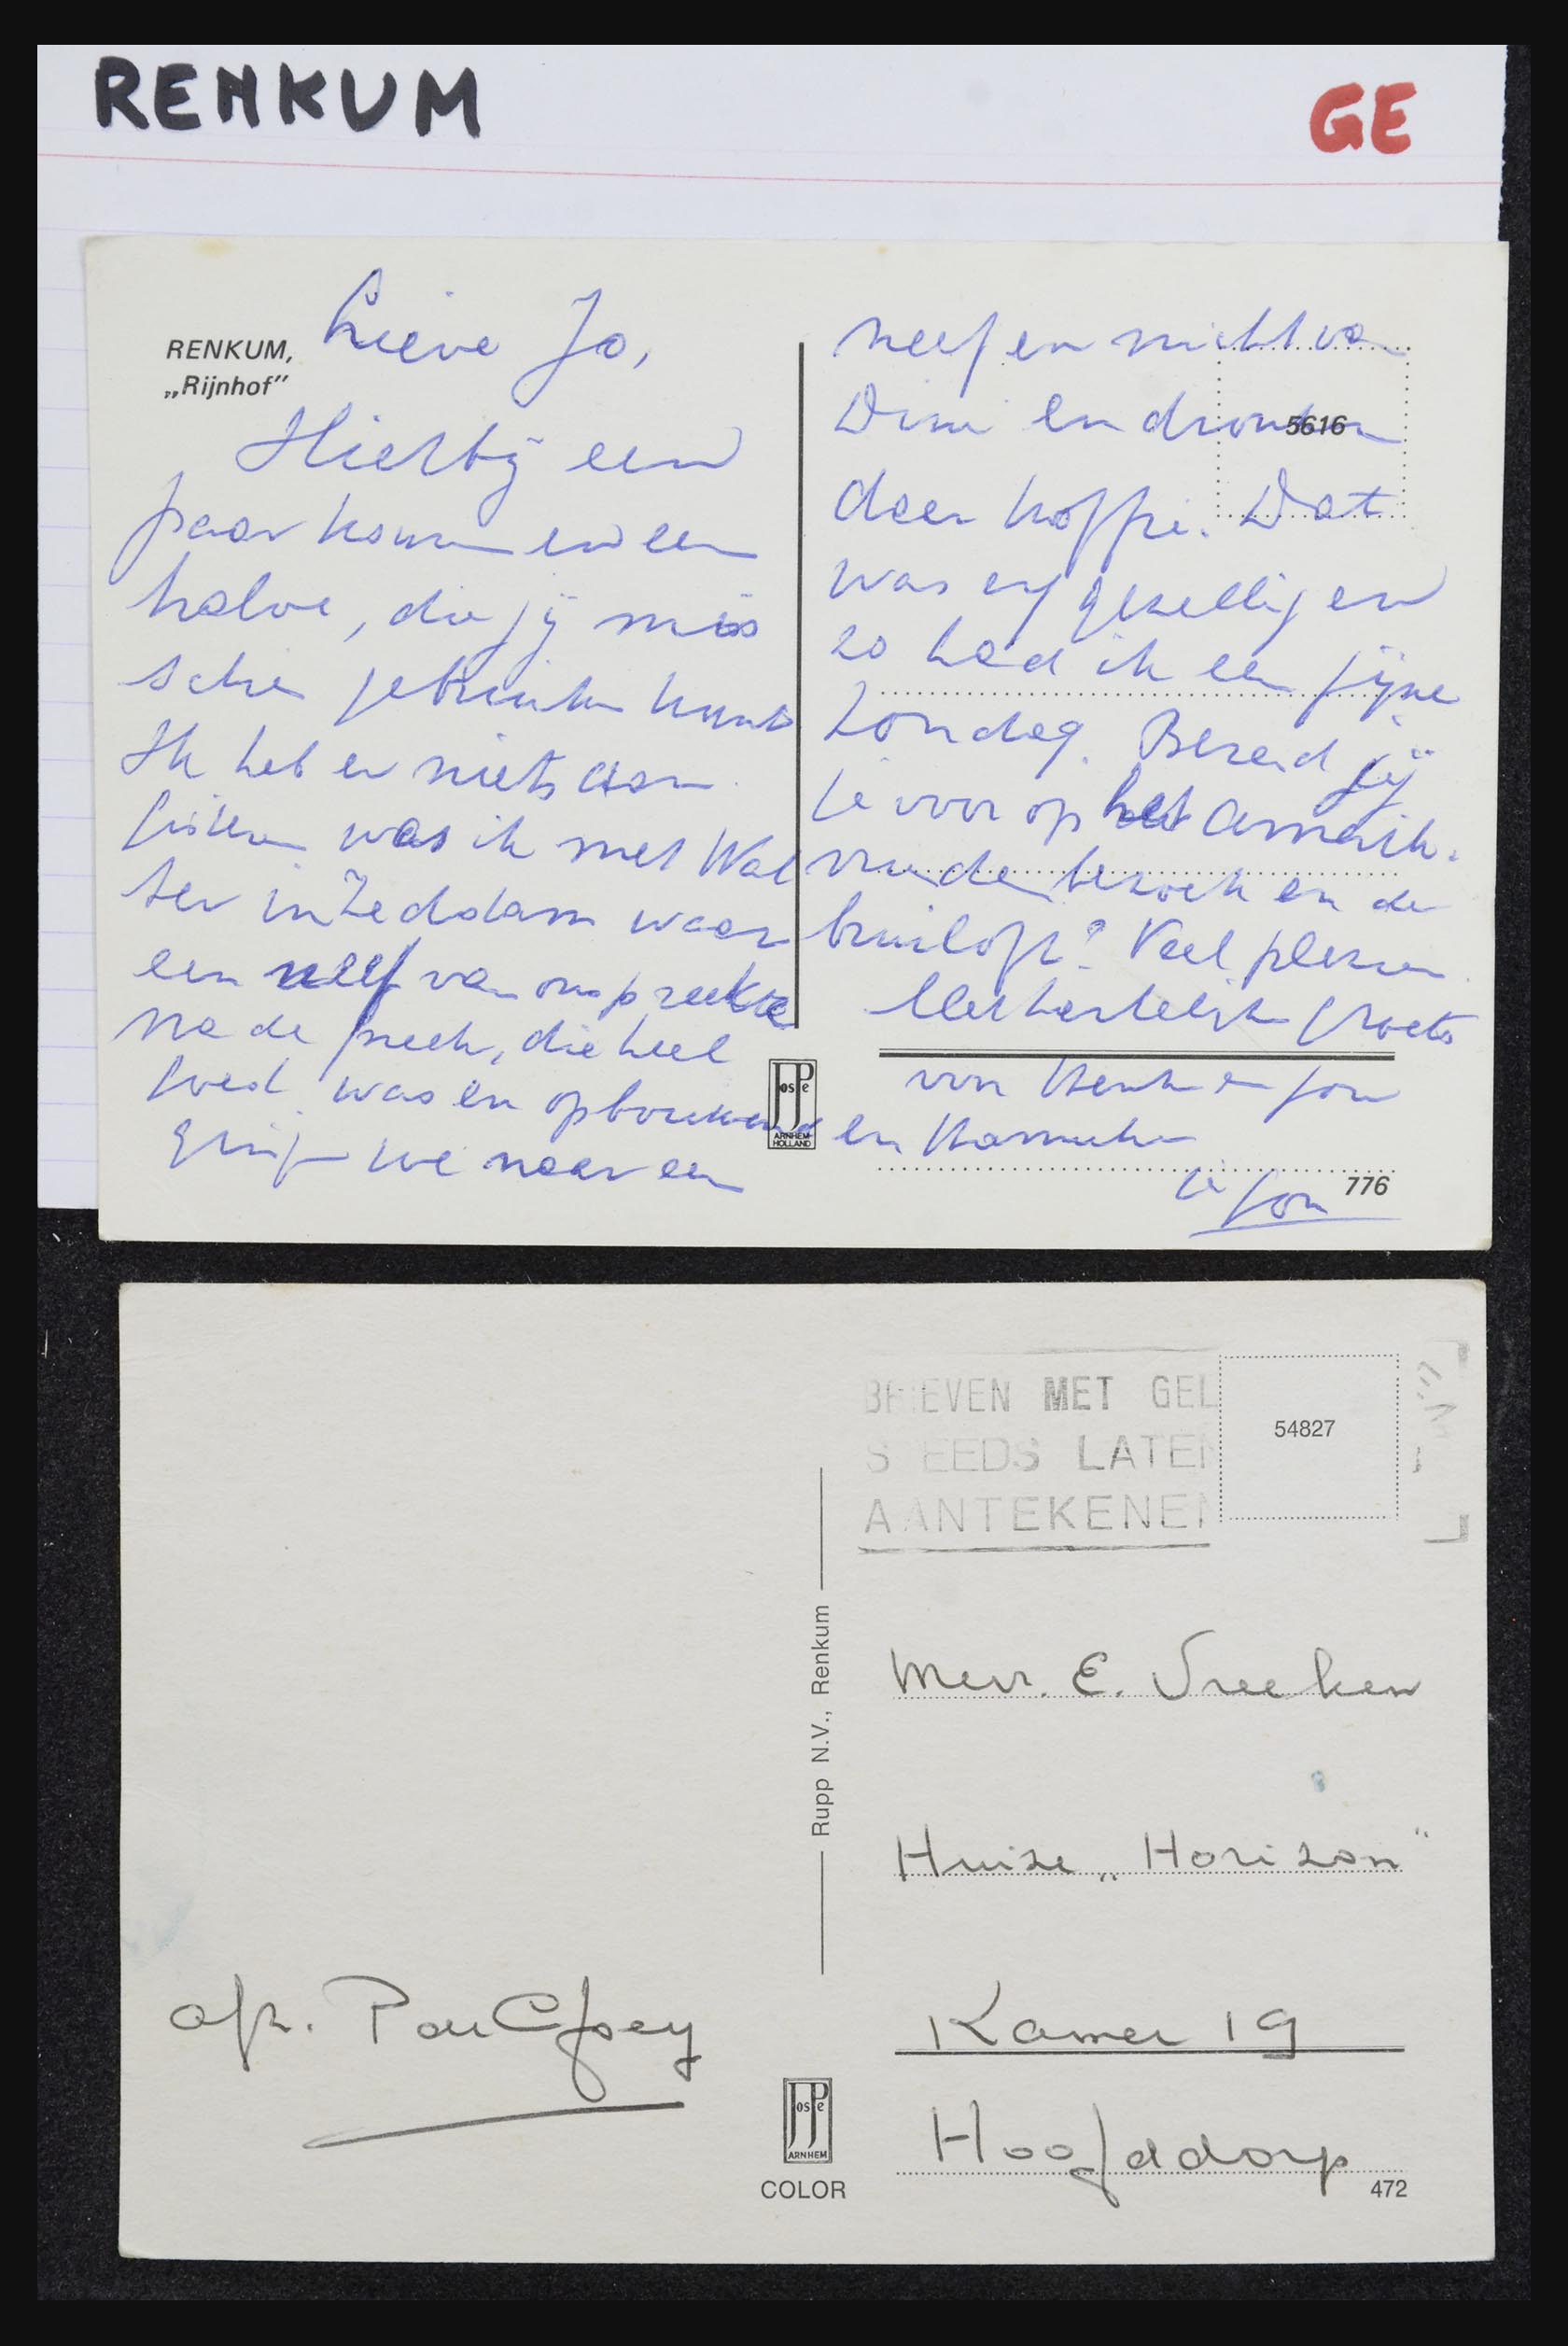 RENKUM
GE
RENKUM,
„Rijnhof”
Lieve Jo,
Hierbij een
paar en een
halve, die jij mis
schien gebruiken kunt
Ik heb er niets aan
Gisteren was ik met Wal
ter in Zeddam waar
een neef van ons preekte
na de preek, die heel
goed was en opbouwend
gingen we naar een
neef en nicht van
Dini en dronken
daar koffie. Dat
was erg gezellig en
zo had ik een fijne
Zondag. Bereid jij
je voor op het
bezoek en de
bruiloft? Veel plezier
Met hartelijke groeten
van Henk en
en Hanneke
je
5616
JosPé
ARNHEM-
HOLLAND
776
BRIEVEN MET GEL
STEEDS LATEN
AANTEKENEN
54827
Rupp N.V., Renkum
Mevr. E. Vreeken
Huize „Horizon”
Kamer 19
Hoofddorp
afz.
JosPé
ARNHEM
COLOR
472